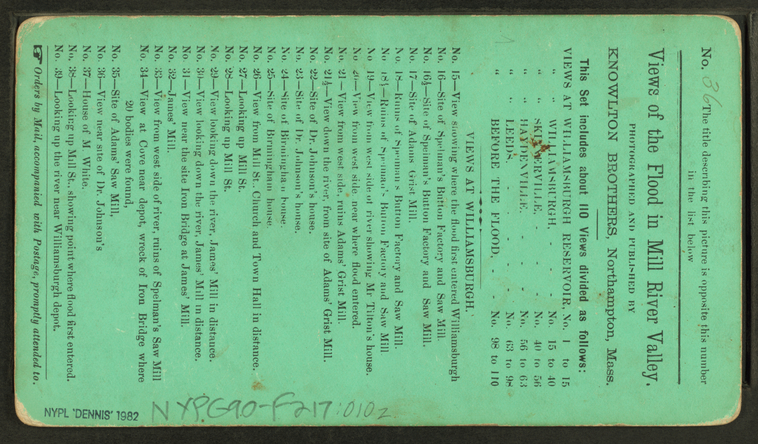 No. 36 The title describing this picture is opposite this number
in the list below
Views of the Flood in Mill River Valley.
PHOTOGRAPHED AND PUBLISHED BY
KNOWLTON BROTHERS, Northampton, Mass.
This Set includes about 110 Views divided as follows:
VIEWS AT WILLIAMSBURGH RESERVOIR, No. 1 to 15
" " WILLIAMSBURGH, - - - No. 15 to 40
" " SKINNERVILLE, - - - No. 40 to 56
" " HAYDENVILLE, - - - No. 56 to 63
" " LEEDS, - - - No. 63 to 98
" " BEFORE THE FLOOD, - - - No. 98 to 110
VIEWS AT WILLIAMSBURGH.
No. 15—View showing where the flood first entered Williamsburgh
No. 16—Site of Spelman's Button Factory and Saw Mill.
No. 16½—Site of Spelman's Button Factory and Saw Mill.
No. 17—Site of Adams Grist Mill.
No. 18—Ruins of Spelman's Button Factory and Saw Mill.
No. 18½—Ruins of Spelman's Button Factory and Saw Mill
No. 19—View from west side of river showing Mr Tilton's house.
No. 20—View from west side near where flood entered.
No. 21—View from west side, ruins Adams' Grist Mill.
No. 21½—View down the river, from site of Adams' Grist Mill.
No. 22—Site of Dr. Johnson's house.
No. 23—Site of Dr. Johnson's house.
No. 24—Site of Birmingham house
No. 25—Site of Birmingham house.
No. 26—View from Mill St., Church and Town Hall in distance.
No. 27—Looking up Mill St.
No. 28—Looking up Mill St.
No. 29—View looking down the river, James' Mill in distance.
No. 30—View looking down the river, James' Mill in distance.
No. 31—View near the site Iron Bridge at James' Mill.
No. 32—James' Mill.
No. 33—View from west side of river, ruins of Spelman's Saw Mill
No. 34—View at Cove near depot, wreck of Iron Bridge where
20 bodies were found,
No. 35—Site of Adams' Saw Mill,
No. 36—View near site of Dr. Johnson's
No. 37—House of M White.
No. 38—Looking up Mill St., showing point where flood first entered.
No. 39—Looking up the river near Williamsburgh depot.
☞ Orders by Mail, accompanied with Postage, promptly attended to.
NYPL 'DENNIS' 1982
NYPG90-F217:0102